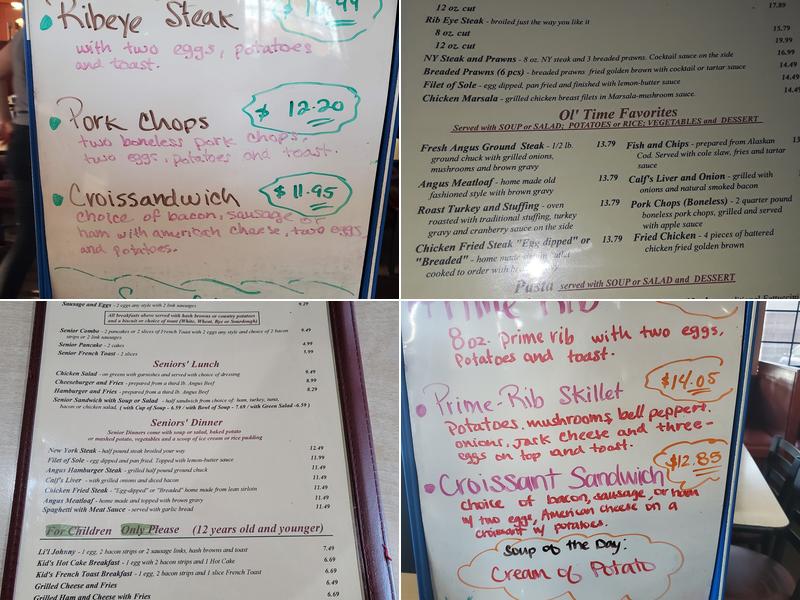 Ribeye Steak
with two eggs, potatoes
and toast.
Pork Chops
$ 12.20
two boneless pork chops,
two eggs, potatoes and toast.
Croissandwich
$ 11.95
choice of bacon, sausage or
ham with american cheese, two eggs
and potatoes.
12 oz cut 17.89
Rib Eye Steak - broiled just the way you like it
8 oz. cut 15.79
12 oz. cut 19.99
NY Steak and Prawns - 8 oz. NY steak and 3 breaded prawns. Cocktail sauce on the side 16.99
Breaded Prawns (6 pcs) - breaded prawns fried golden brown with cocktail or tartar sauce 14.49
Filet of Sole - egg dipped, pan fried and finished with lemon-butter sauce 14.49
Chicken Marsala - grilled chicken breast filets in Marsala-mushroom sauce.
Ol' Time Favorites
Served with SOUP or SALAD; POTATOES or RICE; VEGETABLES and DESSERT
Fresh Angus Ground Steak - 1/2 lb. 13.79
ground chuck with grilled onions,
mushrooms and brown gravy
Angus Meatloaf - home made old 13.79
fashioned style with brown gravy
Roast Turkey and Stuffing - oven 13.79
roasted with traditional stuffing, turkey
gravy and cranberry sauce on the side
Chicken Fried Steak "Egg dipped" or 13.79
"Breaded" - home made
cooked to order with
Fish and Chips - prepared from Alaskan
Cod. Served with cole slaw, fries and tartar
sauce
Calf's Liver and Onion - grilled with
onions and natural smoked bacon
Pork Chops (Boneless) - 2 quarter pound
boneless pork chops, grilled and served
with apple sauce
Fried Chicken - 4 pieces of battered
chicken fried golden brown
Pasta served with SOUP or SALAD and DESSERT
Sausage and Eggs - 2 eggs any style with 2 link sausages 9.29
All breakfasts above served with hash browns or country potatoes
and a biscuit or choice of toast (White, Wheat, Rye or Sourdough)
Senior Combo - 2 pancakes or 2 slices of French Toast with 2 eggs any style and choice of 2 bacon 9.49
strips or 2 link sausages
Senior Pancake - 2 cakes 4.99
Senior French Toast - 2 slices 5.99
Seniors' Lunch
Chicken Salad - on greens with garnishes and served with choice of dressing 9.49
Cheeseburger and Fries - prepared from a third lb. Angus Beef 8.99
Hamburger and Fries - prepared from a third lb. Angus Beef 8.29
Senior Sandwich with Soup or Salad - half sandwich from choice of: ham, turkey, tuna,
bacon or chicken salad. ( with Cup of Soup - 6.59 / with Bowl of Soup - 7.69 / with Green Salad -6.59 )
Seniors' Dinner
Senior Dinners come with soup or salad, baked potato
or mashed potato, vegetables and a scoop of ice cream or rice pudding
New York Steak - half pound steak broiled your way 12.49
Filet of Sole - egg dipped and pan fried. Topped with lemon-butter sauce 11.99
Angus Hamburger Steak - grilled half pound ground chuck 11.49
Calf's Liver - with grilled onions and diced bacon 11.49
Chicken Fried Steak - "Egg-dipped" or "Breaded" home made from lean sirloin 11.49
Angus Meatloaf - home made and topped with brown gravy 11.49
Spaghetti with Meat Sauce - served with garlic bread 11.49
For Children Only Please (12 years old and younger)
Li'l Johnny - 1 egg, 2 bacon strips or 2 sausage links, hash browns and toast 7.49
Kid's Hot Cake Breakfast - 1 egg with 2 bacon strips and 1 Hot Cake 6.69
Kid's French Toast Breakfast - 1 egg, 2 bacon strips and 1 slice French Toast 6.69
Grilled Cheese and Fries 6.49
Grilled Ham and Cheese with Fries 6.69
Prime Rib
8 oz. prime rib with two eggs,
Potatoes and toast.
Prime-Rib Skillet
$14.05
Potatoes, mushrooms, bell peppert,
onions, jack cheese and three-
eggs on top and toast.
Croissant Sandwich
$12.85
choice of bacon, sausage, or ham
w/ two eggs, American cheese on a
croisant w/ potatoes.
Soup of the Day:
Cream of Potato